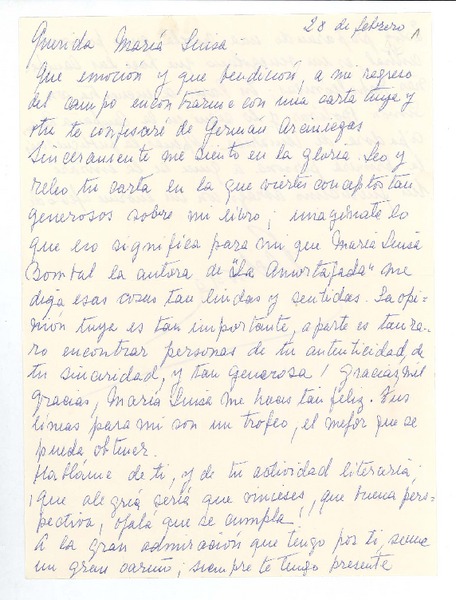 28 de febrero
Querida María Luisa
Que emoción y que bendición, a mi regreso
del campo encontrarme con una carta tuya y
otra te confesaré de Germán Arciniegas
Sinceramente me siento en la gloria. Leo y
releo tu carta en la que viertes conceptos tan
generosos sobre mi libro; imagínate lo
que eso significa para mi que María Luisa
Bombal la autora de "La Amortajada" me
diga esas cosas tan lindas y sentidas. La opi-
nión tuya es tan importante, aparte es tan ra-
ro encontrar personas de tu autenticidad, de
tu sinceridad, y tan generosa! Gracias mil
gracias, María Luisa me haces tan feliz. Tus
líneas para mi son un trofeo, el mejor que se
pueda obtener.
Hablame de ti, y de tu actividad literaria,
¡que alegría sería que vinieses, que buena pers-
pectiva, ojalá que se cumpla!
A la gran admiración que tengo por ti, se une
un gran cariño; siempre te tengo presente